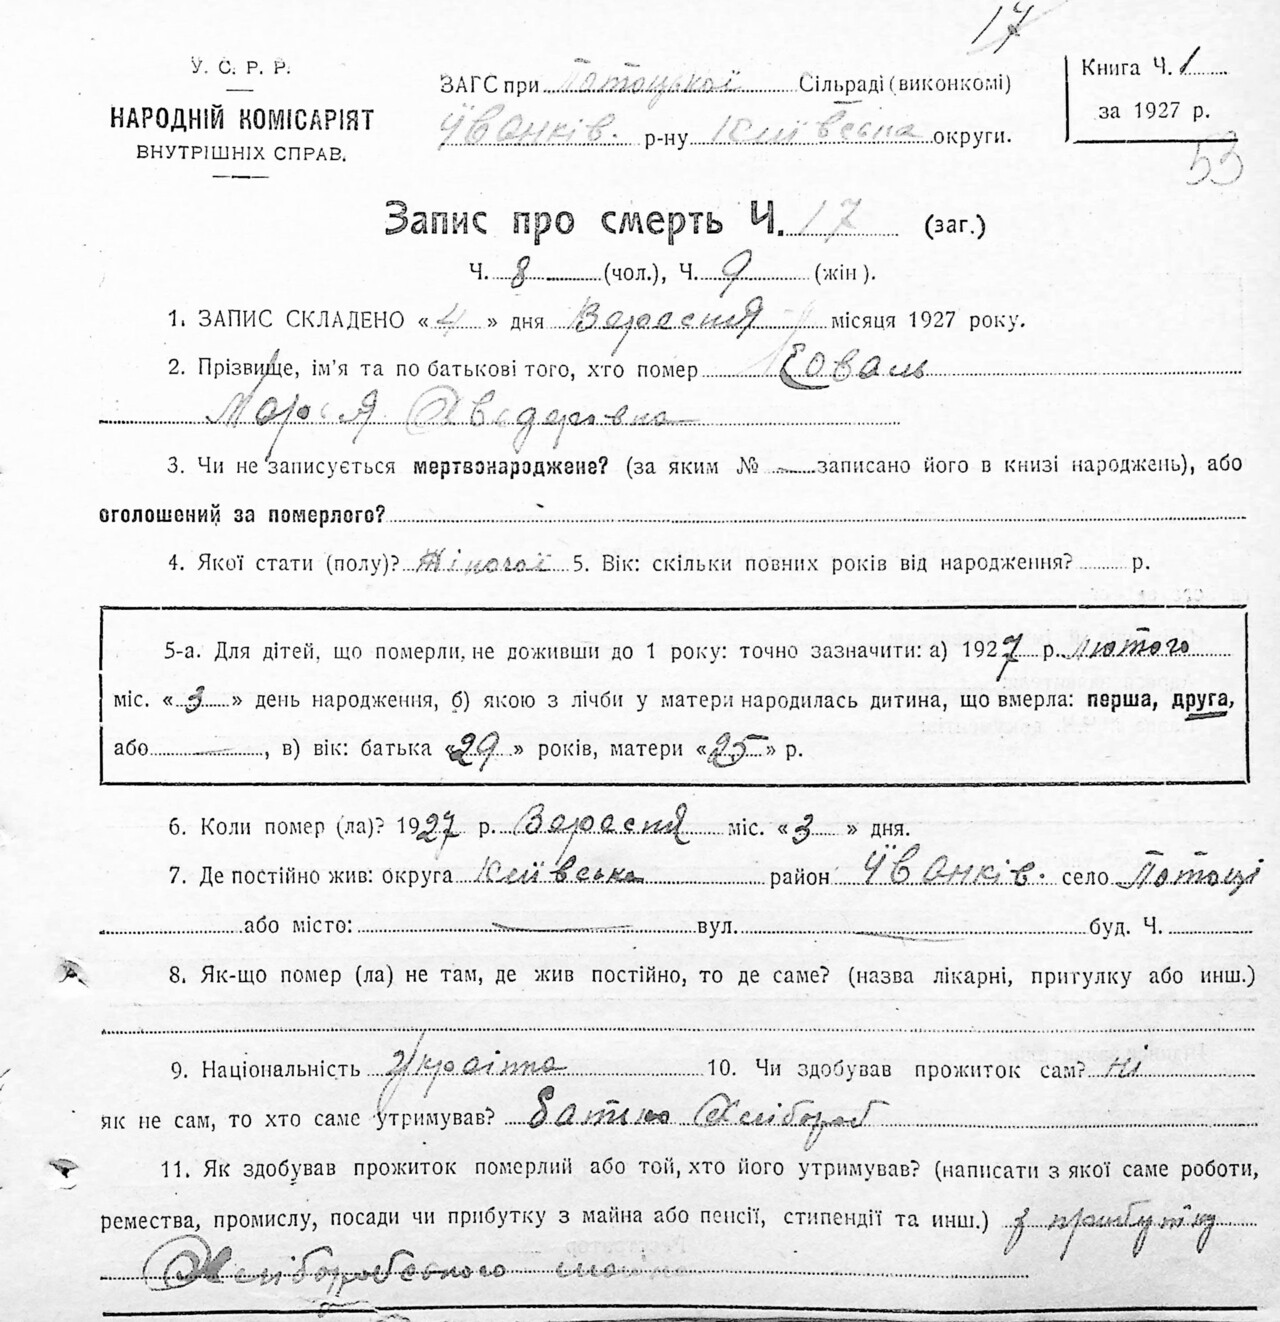 17
У. С. Р. Р.
НАРОДНІЙ КОМІСАРІЯТ
ВНУТРІШНІХ СПРАВ.
ЗАГС при Потоцької Сільраді (виконкомі)
Іванків. р-ну Київська округи.
Книга Ч. 1
за 1927 р.
53
Запис про смерть Ч. 17 (заг.)
Ч. 8 (чол.), Ч. 9 (жін).
1. ЗАПИС СКЛАДЕНО «4» дня Вересня місяця 1927 року.
2. Прізвище, ім'я та по батькові того, хто помер Коваль
Марія
3. Чи не записується мертвонароджене? (за яким № — записано його в книзі народжень), або
оголошений за померлого?
4. Якої стати (полу)? Жіночої 5. Вік: скільки повних років від народження? р.
5-а. Для дітей, що померли, не доживши до 1 року: точно зазначити: а) 1927 р. Лютого
міс. «3» день народження, б) якою з лічби у матери народилась дитина, що вмерла: перша, друга,
або —, в) вік: батька «29» років, матери «25» р.
6. Коли помер (ла)? 1927 р. Вересня міс. «3» дня.
7. Де постійно жив: округа Київська район Іванків. село Потоці
або місто: — вул. — буд. Ч.
8. Як-що помер (ла) не там, де жив постійно, то де саме? (назва лікарні, притулку або инш.)
9. Національність Украінка 10. Чи здобував прожиток сам? ні
як не сам, то хто саме утримував? Батько Хлібороб
11. Як здобував прожиток померлий або той, хто його утримував? (написати з якої саме роботи,
ремества, промислу, посади чи прибутку з майна або пенсії, стипендії та инш.) з прибутку
Хліборобського майна